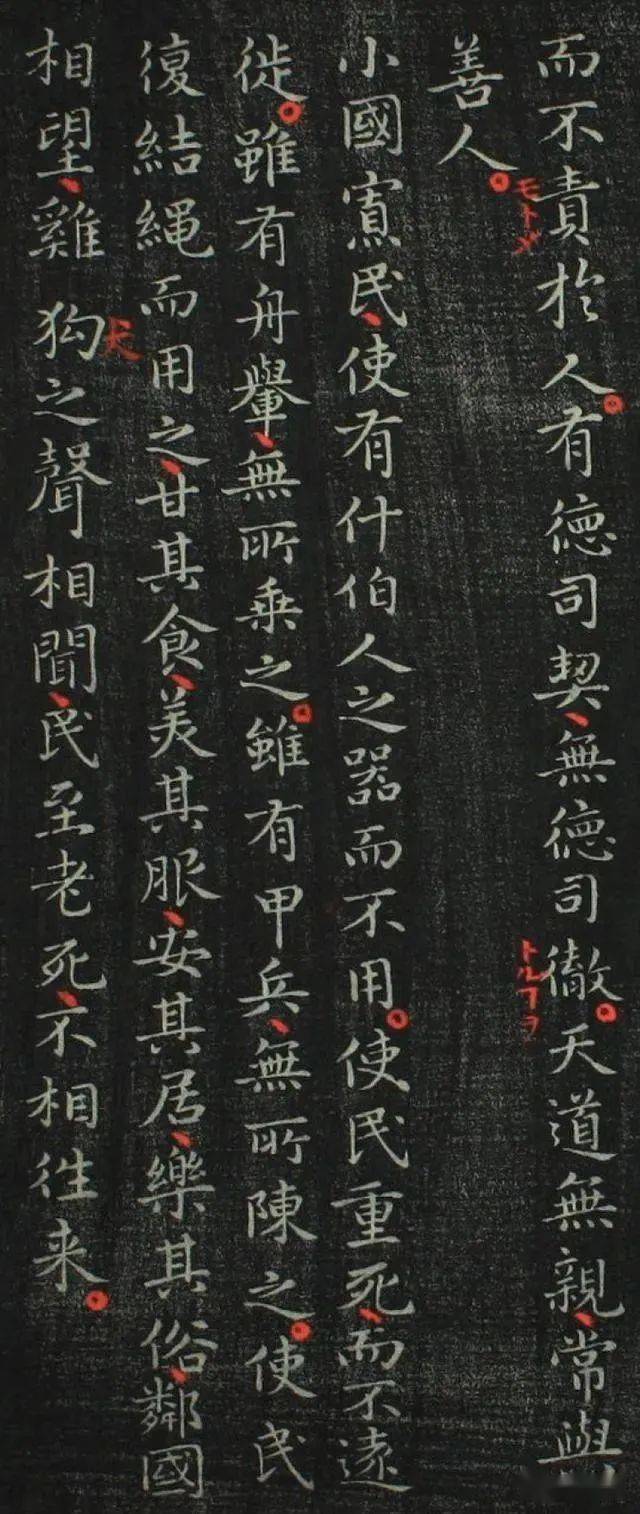 而不責於人。有德司契、無德司徹。天道無親、常與
善人。
小國寡民、使有什伯人之器而不用。使民重死、而不遠
徙。雖有舟轝、無所乗之。雖有甲兵、無所陳之。使民
復結繩而用之、甘其食、美其服、安其居、樂其俗、鄰國
相望、雞狗之聲相聞、民至老死、不相往来。
モトメ
トルフヲ
犬